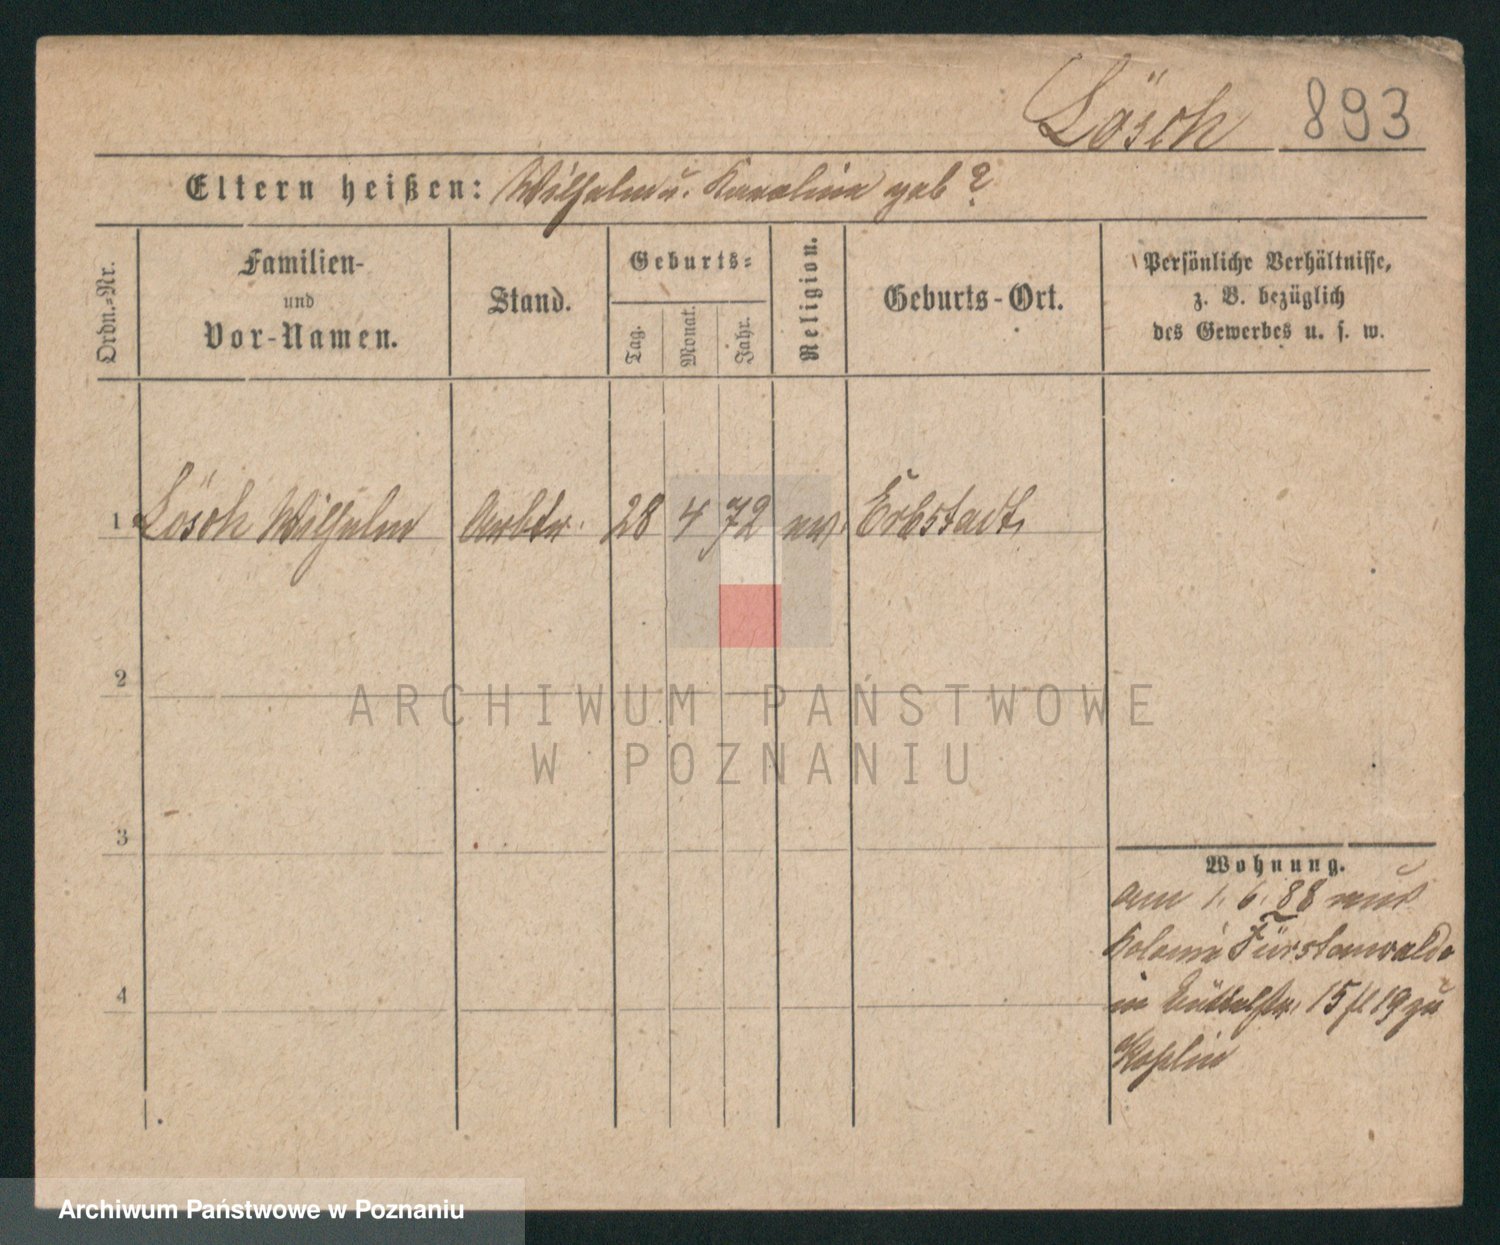 Lösch 893
Eltern heißen: Wilhelm u. Karoline geb ?
Ordn.-Nr.
Familien-
und
Vor-Namen.
Stand.
Geburts-
Tag.
Monat.
Jahr.
Religion.
Geburts-Ort.
Persönliche Verhältnisse,
z. B. bezüglich
des Gewerbes u. s. w.
1 Lösch Wilhelm Arbtr. 28 4 72 ev. Erbstadt
2
3
4
Wohnung.
am 1. 6. 88 aus
Kolonie Fürstenwalde
in 15 19 zu
ARCHIWUM PAŃSTWOWE
W POZNANIU
Archiwum Państwowe w Poznaniu